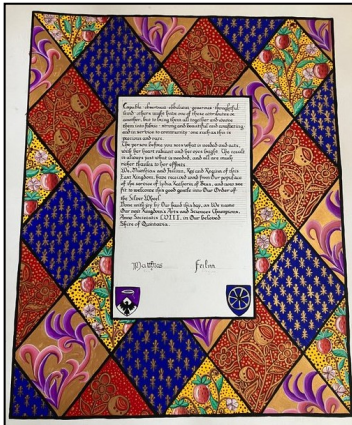 Capable · chivalrous · studious · generous · thoughtful ·
kind · others might have one of these attributes or
another, but to bring them all together and weave
them into fabric · strong and beautiful and unfaltering
and in service to community · one such as this is
precious and rare.
The person before you sees what is needed and acts,
with her heart radiant and her eyes bright. The result
is always just what is needed, and all are made
richer thanks to her efforts.
We, Matthias and Feilinn, and of this
East Kingdom, have received word from Our populace
of the service of Lydia Katheryn of and are
fit to welcome this good gentle into Our Order of
the Silver Wheel.
Done with joy by Our hand this day, as We name
Our new Kingdom's Arts and Sciences Champions,
Anno Societatis LVIII, in Our beloved
Shire of Quintavia.
Matthias Feilinn